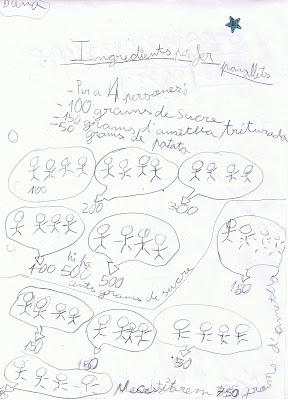 Duna
Ingredients per fer
panallets
- Per a 4 persones:
- 100 grams de sucre
- 150 grams d'ametlla triturada
- 50 grams de patata
100
200
300
400
500
hi ha
500
grams de sucre
150
150
150
150
Necessitarem 750 grams d'ametlla